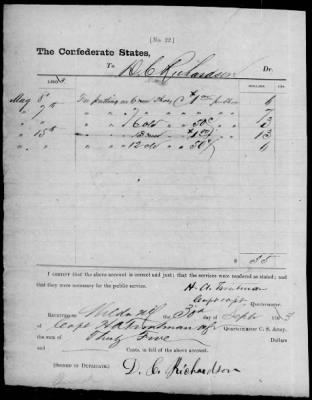 [No. 22.]
The Confederate States,
To D. C. Richardson Dr.
DOLLARS. CTS.
May 8th For putting on 6 new Shoes @ $1.00 6
" " " " 7
" " " 6 old " " 50c 3
" 15th " " 13 new " " $1.00 13
" " " " 12 old " " 50c 6
$ 35
I CERTIFY that the above account is correct and just; that the services were rendered as stated; and
that they were necessary for the public service.
H. A. Troutman
Capt & Quartermaster.
RECEIVED at the 30th day of Sept 1863
of Capt H A Troutman Quartermaster C. S. Army,
the sum of Thirty Five Dollars
and Cents, in full of the above account.
[SIGNED IN DUPLICATE.] D. C. Richardson